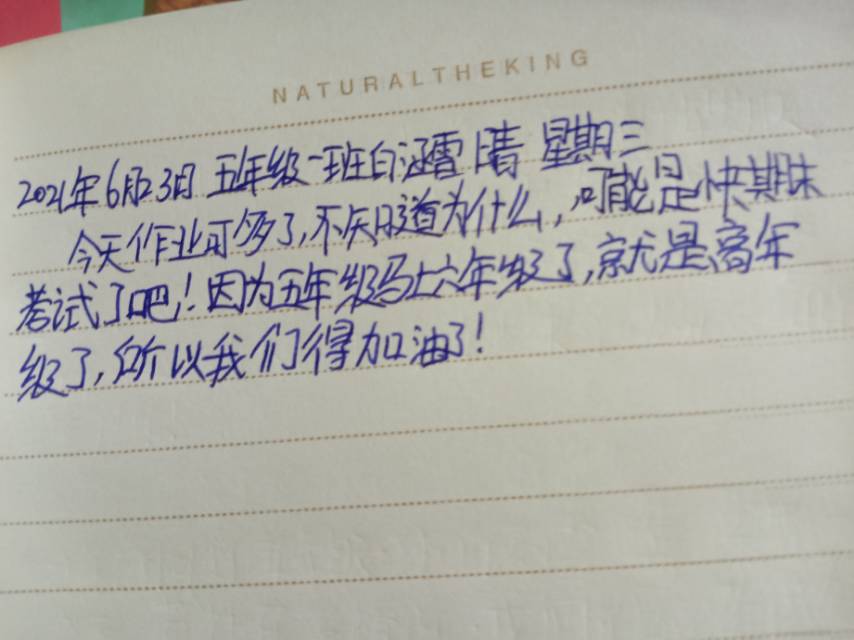 NATURALTHEKING
2021年6月23日 五年级一班白涵雪 晴 星期三
今天作业可多了,不知道为什么,可能是快期末
考试了吧!因为五年级马上六年级了,就是高年
级了,所以我们得加油了!